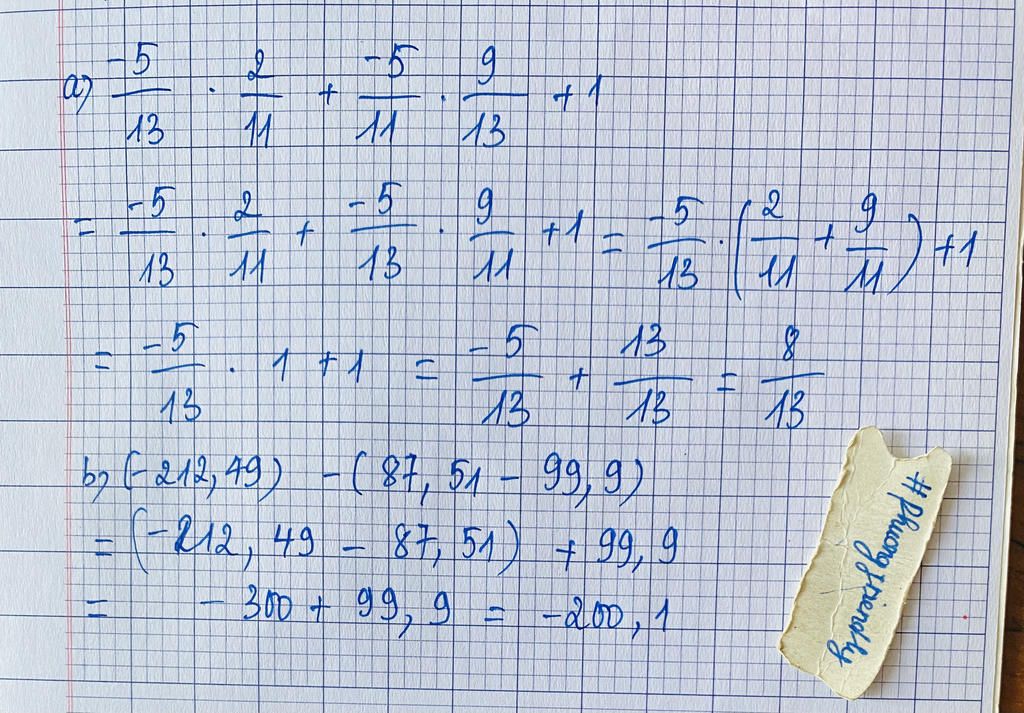 a) -5/13 . 2/11 + -5/11 . 9/13 + 1
= -5/13 . 2/11 + -5/13 . 9/11 + 1 = -5/13 . (2/11 + 9/11) + 1
= -5/13 . 1 + 1 = -5/13 + 13/13 = 8/13
b) (-212,49) - (87,51 - 99,9)
= (-212,49 - 87,51) + 99,9
= -300 + 99,9 = -200,1
#phuongfriendly